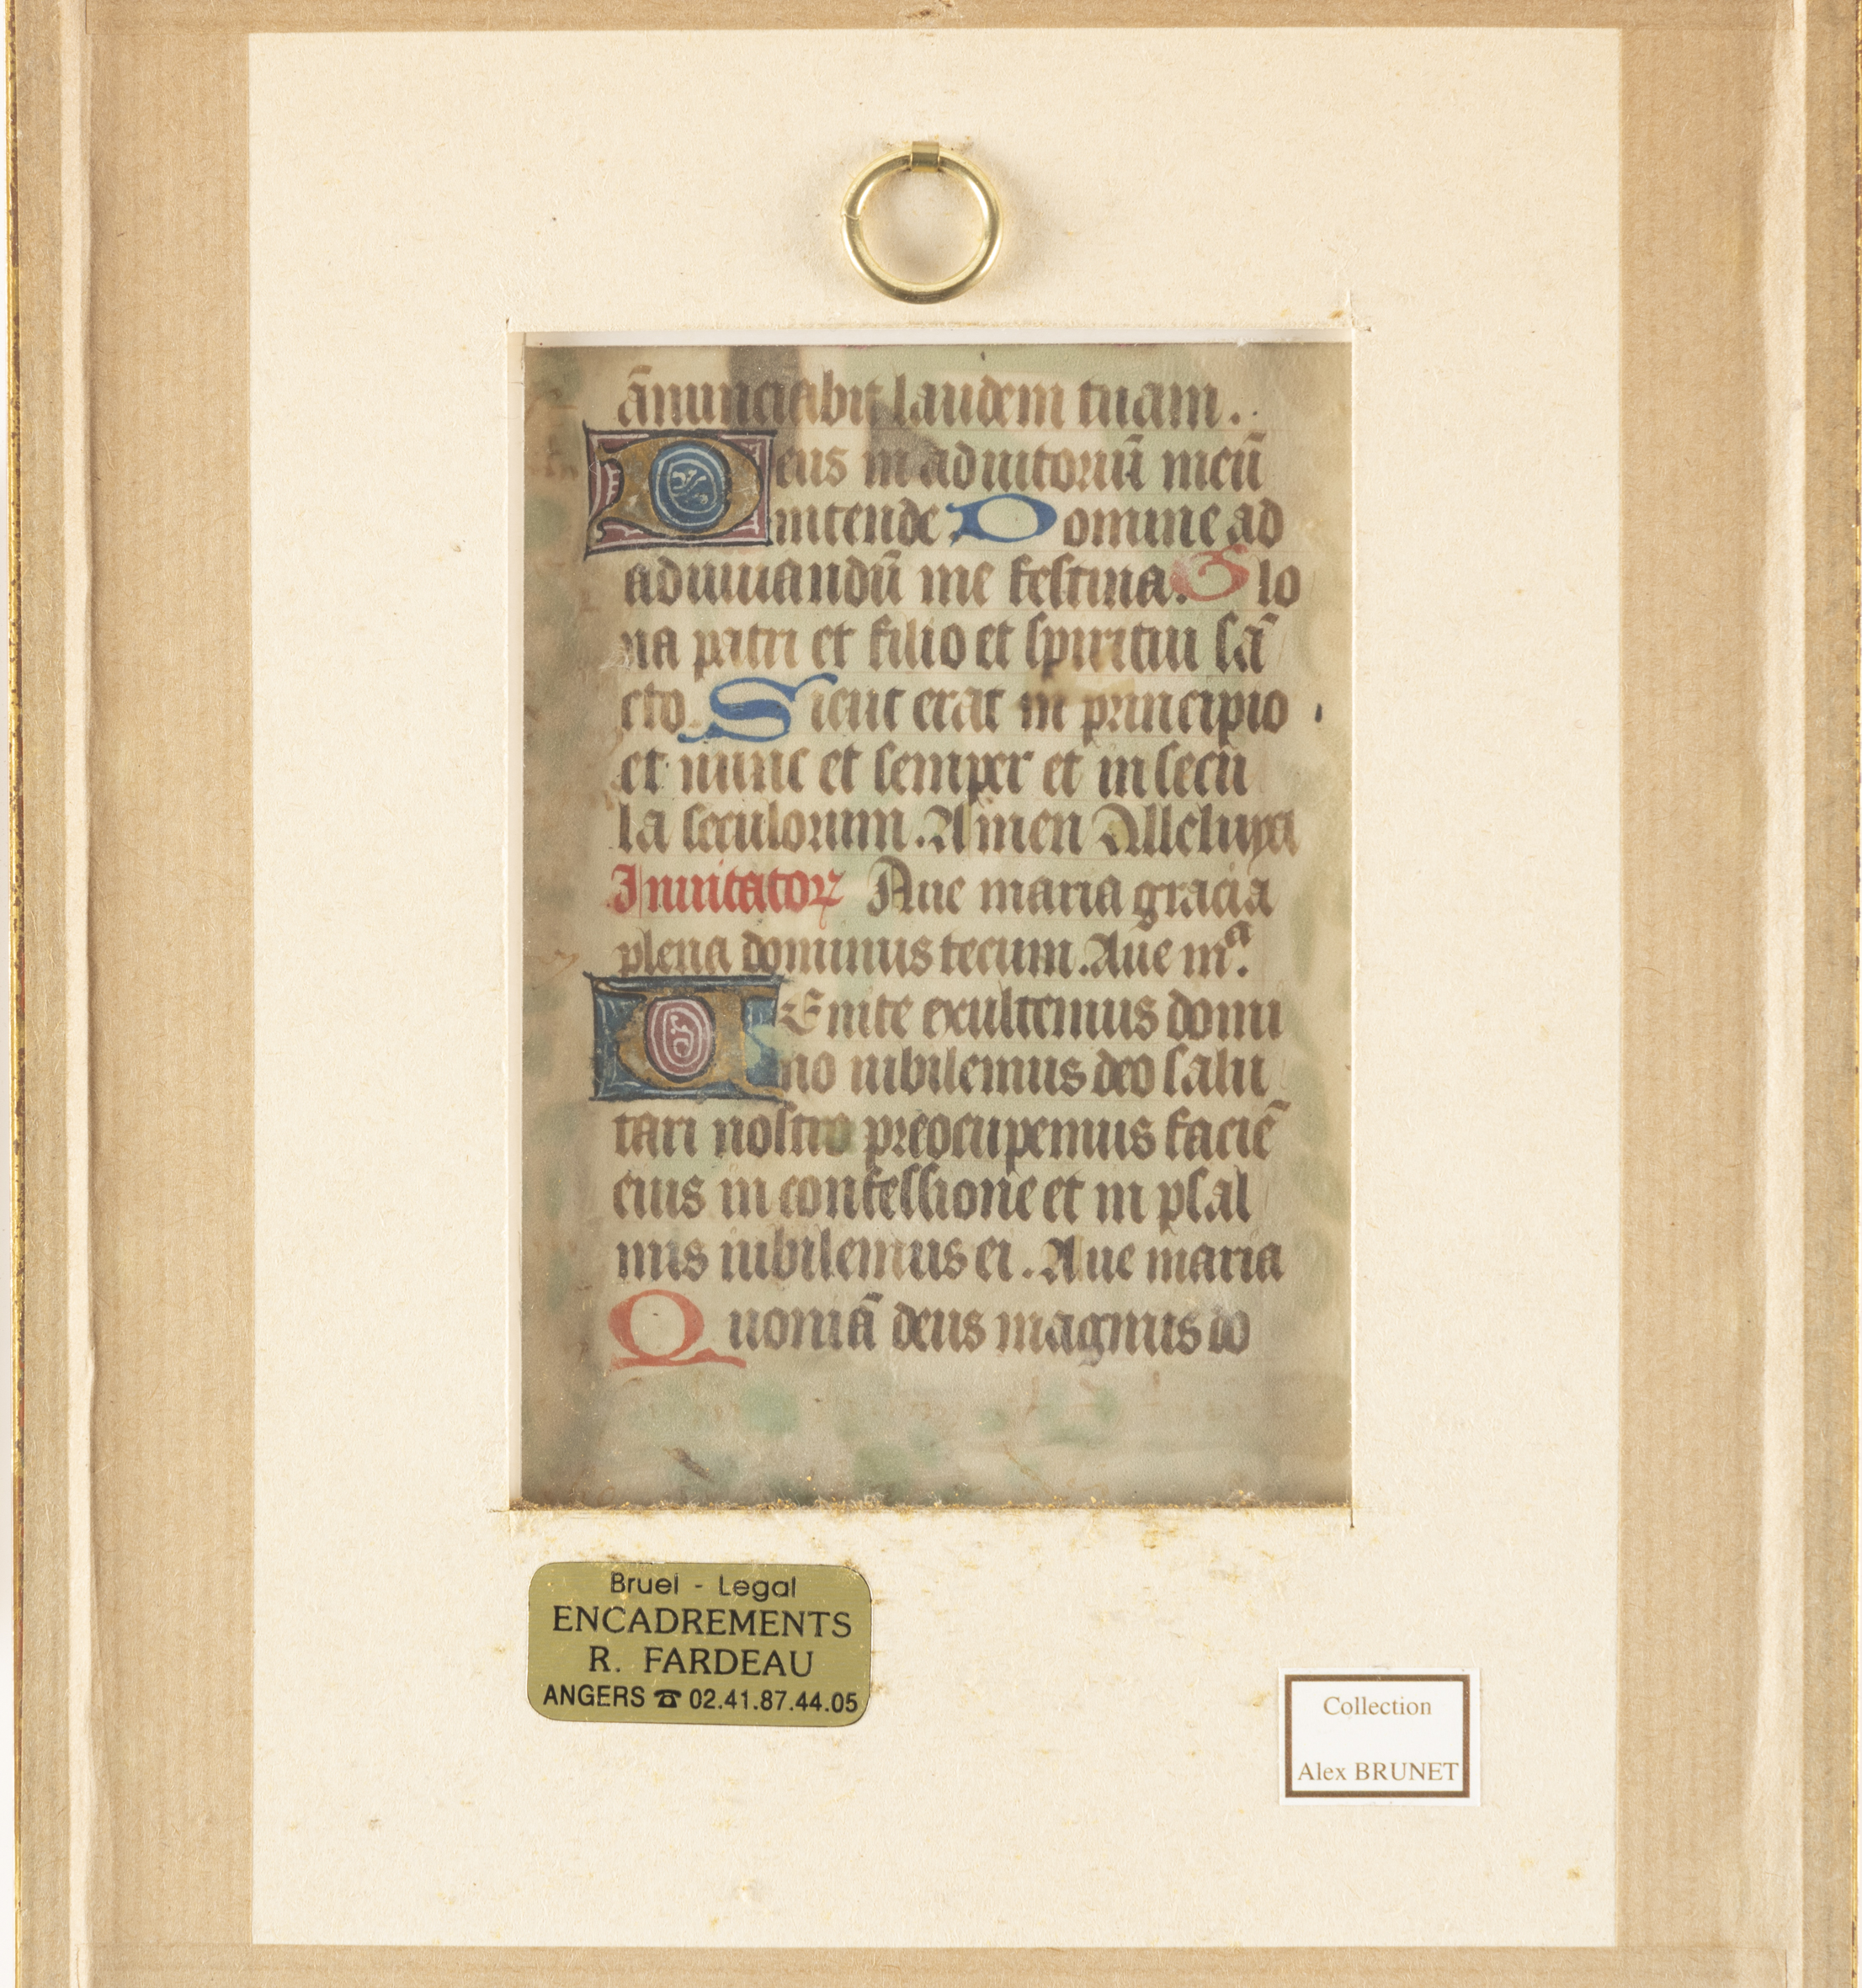 ānunciabit laudem tuam.
Deus in adiutoriū meū
intende Domine ad
adiuuandū me festina. Glo
ria patri et filio et spiritui sā
cto. Sicut erat in principio
et nunc et semper et in secu
la seculorum. Amen Alleluya
Inuitatorꝝ Aue maria gracia
plena dominus tecum. Aue mᵃ.
VEnite exultemus domi
no iubilemus deo salu
tari nostro preocupemus faciē
eius in confessione et in psal
mis iubilemus ei. Aue maria
Quoniā deus magnus do
Bruel - Legal
ENCADREMENTS
R. FARDEAU
ANGERS ☎ 02.41.87.44.05
Collection
Alex BRUNET